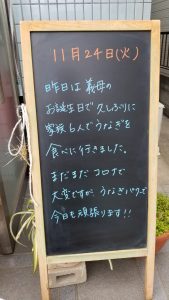 11月24日(火)
昨日は義母の
お誕生日で久しぶりに
家族6人でうなぎを
食べに行きました。
まだまだコロナで
大変ですが、うなぎパワーで
今日も頑張ります!!